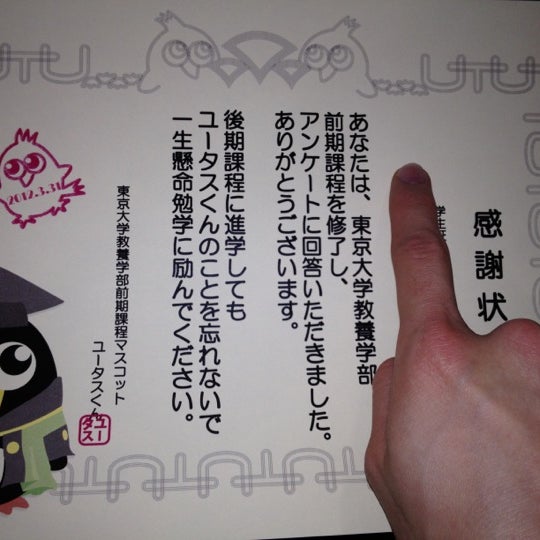 感謝状
学生証
あなたは、東京大学教養学部
前期課程を修了し、
アンケートに回答いただきました。
ありがとうございます。
後期課程に進学しても
ユータスくんのことを忘れないで
一生懸命勉学に励んでください。
東京大学教養学部前期課程マスコット
ユータスくん
ユー
タス
2012.3.31
UTU
UTU